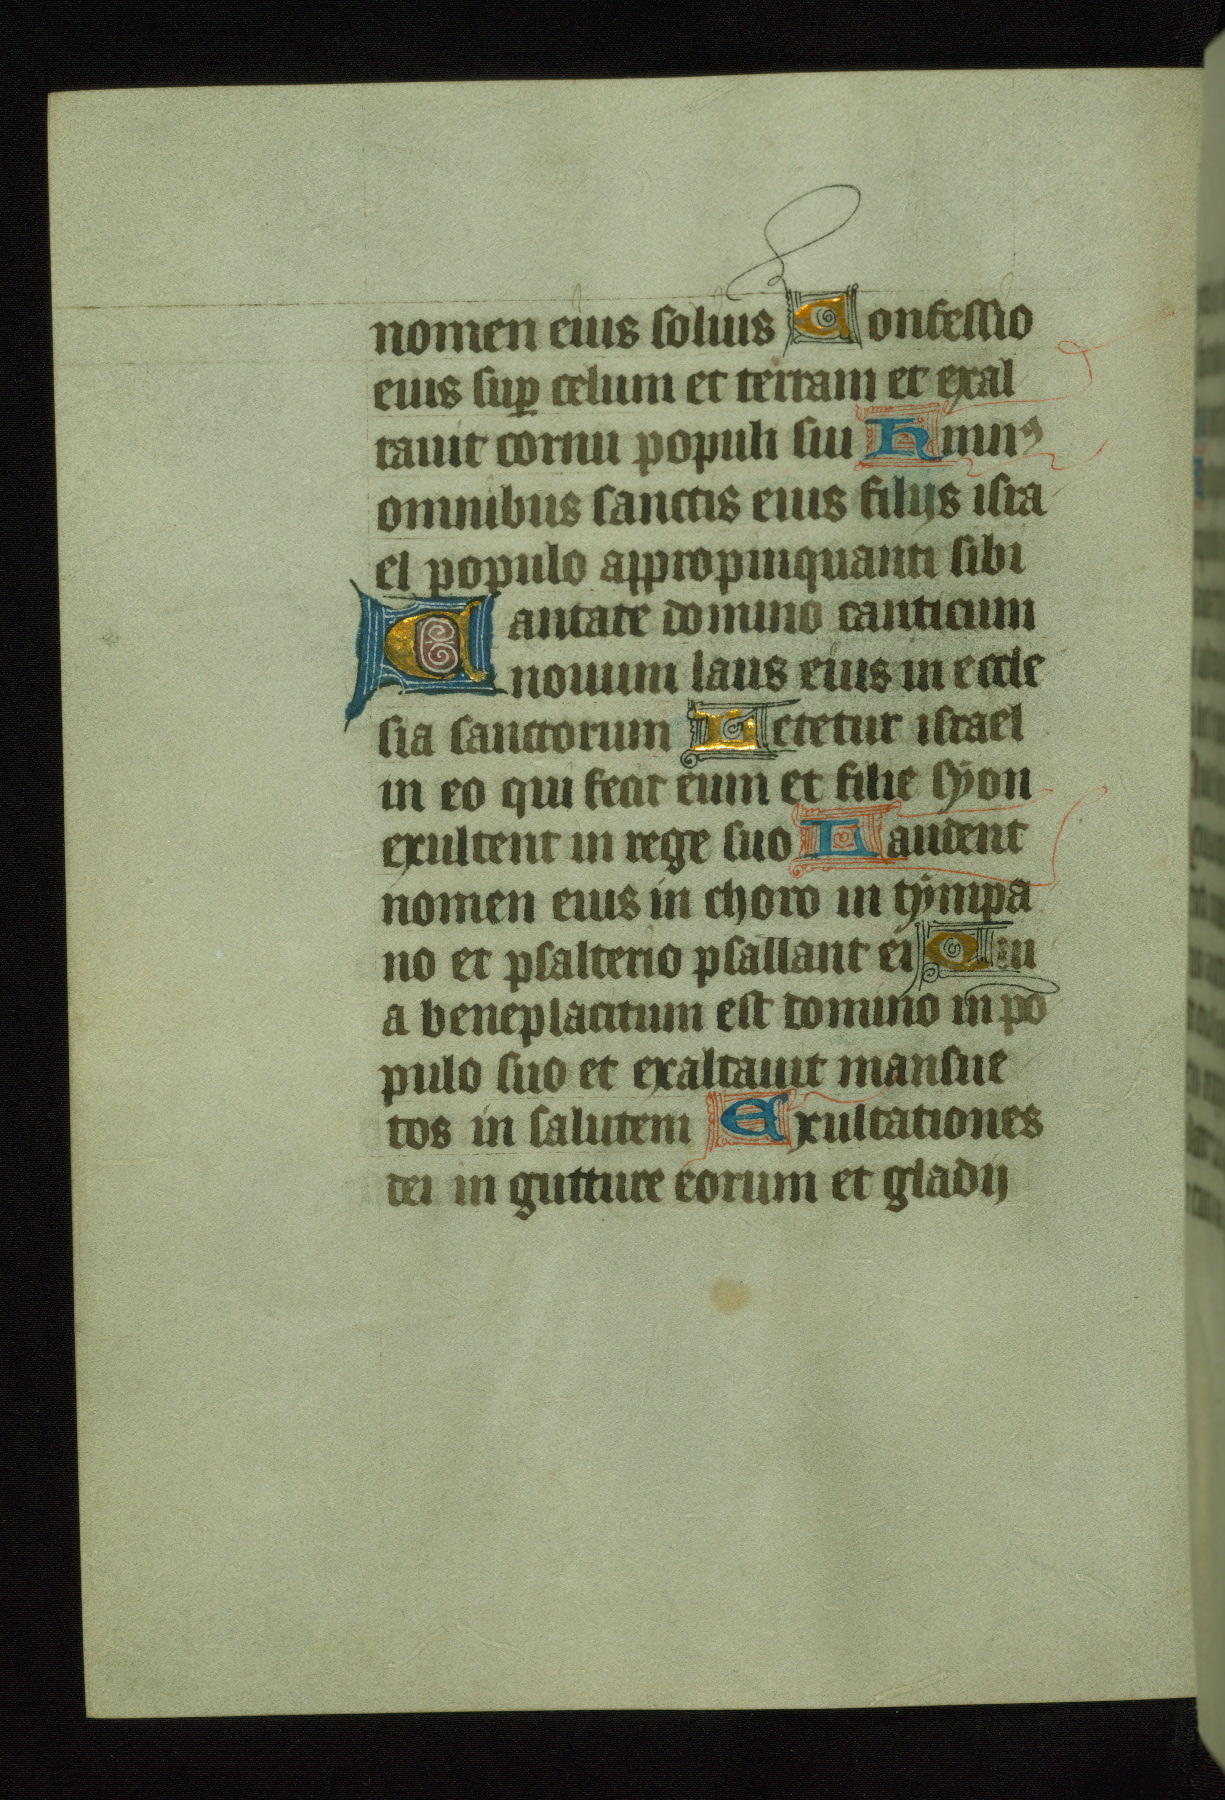 nomen eius solius Confessio
eius suꝑ celum et terram et exal
tauit cornu populi sui Hmnꝰ
omnibus sanctis eius filijs isra
el populo appropinquanti sibi
Cantate domino canticum
nouum laus eius in eccle
sia sanctorum Letetur israel
in eo qui fecit eum et filie syon
exultent in rege suo Laudent
nomen eius in choro in tympa
no et psalterio psallant ei Qui
a beneplacitum est domino in po
pulo suo et exaltauit mansue
tos in salutem Exultationes
dei in gutture eorum et gladij